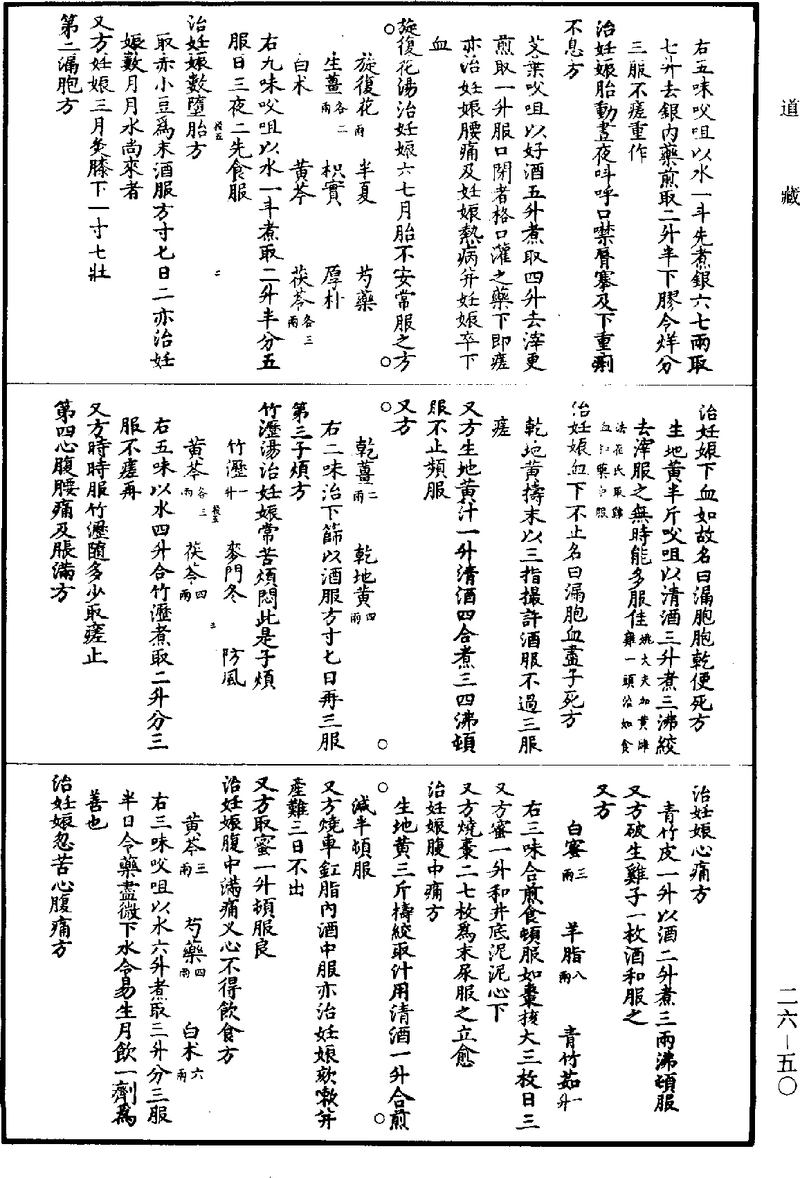 道藏
右五味㕮咀以水一斗先煮銀六七兩取
七升去銀内藥煎取二升半下膠令烊分
三服不瘥重作
治妊娠胎動晝夜呌呼口噤脣搴及下重痢
不息方
艾葉㕮咀以好酒五升煮取四升去滓更
煎取一升服口閉者格口灌之藥下即瘥
亦治妊娠腰痛及妊娠熱病并妊娠卒下
血
旋復花湯治妊娠六七月胎不安常服之方
旋復花一兩 半夏 芍藥
生薑各二兩 枳實 厚朴
白术 黄芩 茯苓各三兩
右九味㕮咀以水一斗煮取二升半分五
服日三夜二先食服
治妊娠數墮胎方
取赤小豆爲末酒服方寸匕日二亦治妊
娠數月月水尚來者
又方妊娠三月灸膝下一寸七壯
第二漏胞方
治妊娠下血如故名曰漏胞胞乾便死方
生地黄半斤㕮咀以清酒三升煮三沸絞
去滓服之無時能多服佳姚大夫加黄雌雞一頭治如食法崔氏取雞血和藥中服
治妊娠血下不止名曰漏胞血盡子死方
乾地黄擣末以三指撮許酒服不過三服
瘥
又方生地黄汁一升清酒四合煮三四沸頓
服不止頻服
又方
乾薑二兩 乾地黄四兩
右二味治下篩以酒服方寸匕日再三服
第三子煩方
竹瀝湯治妊娠常苦煩悶此是子煩
竹瀝一升 麥門冬 防風
黄芩各三兩 茯苓四兩
右五味以水四升合竹瀝煮取二升分三
服不瘥再
又方時時服竹瀝隨多少取瘥止
第四心腹腰痛及脹滿方
治妊娠心痛方
青竹皮一升以酒二升煮三兩沸頓服
又方破生雞子一枚酒和服之
又方
白蜜三兩 羊脂八兩 青竹茹一升
右三味合煎食頓服如棗核大三枚日三
又方蜜一升和井底泥泥心下
又方燒棗二七枚爲末尿服之立愈
治妊娠腹中痛方
生地黄三斤擣絞取汁用清酒一升合煎
減半頓服
又方燒車釭脂内酒中服亦治妊娠欬嗽并
產難三日不出
又方取蜜一升頓服良
治妊娠腹中滿痛叉心不得飲食方
黄芩三兩 芍藥四兩 白术六兩
右三味㕮咀以水六升煮取三升分三服
半日令藥盡微下水令易生月飲一劑爲
善也
治妊娠忽苦心腹痛方
二六－五〇